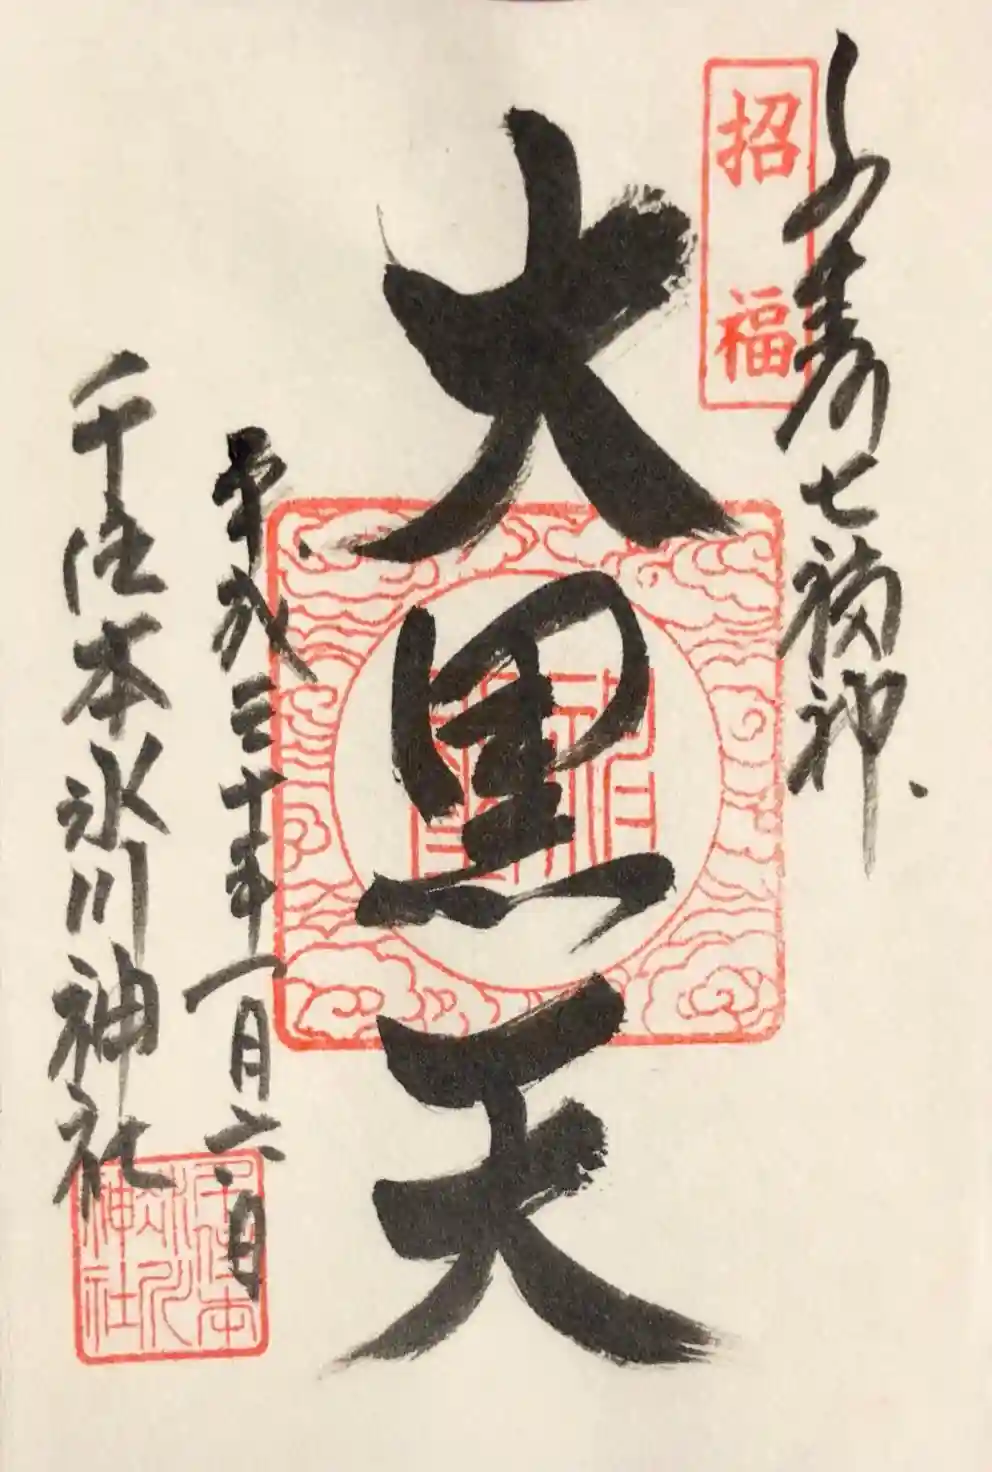 招福
寿七福神
大黒天
平成三十年一月六日
千住本氷川神社
千住本
氷川
神社